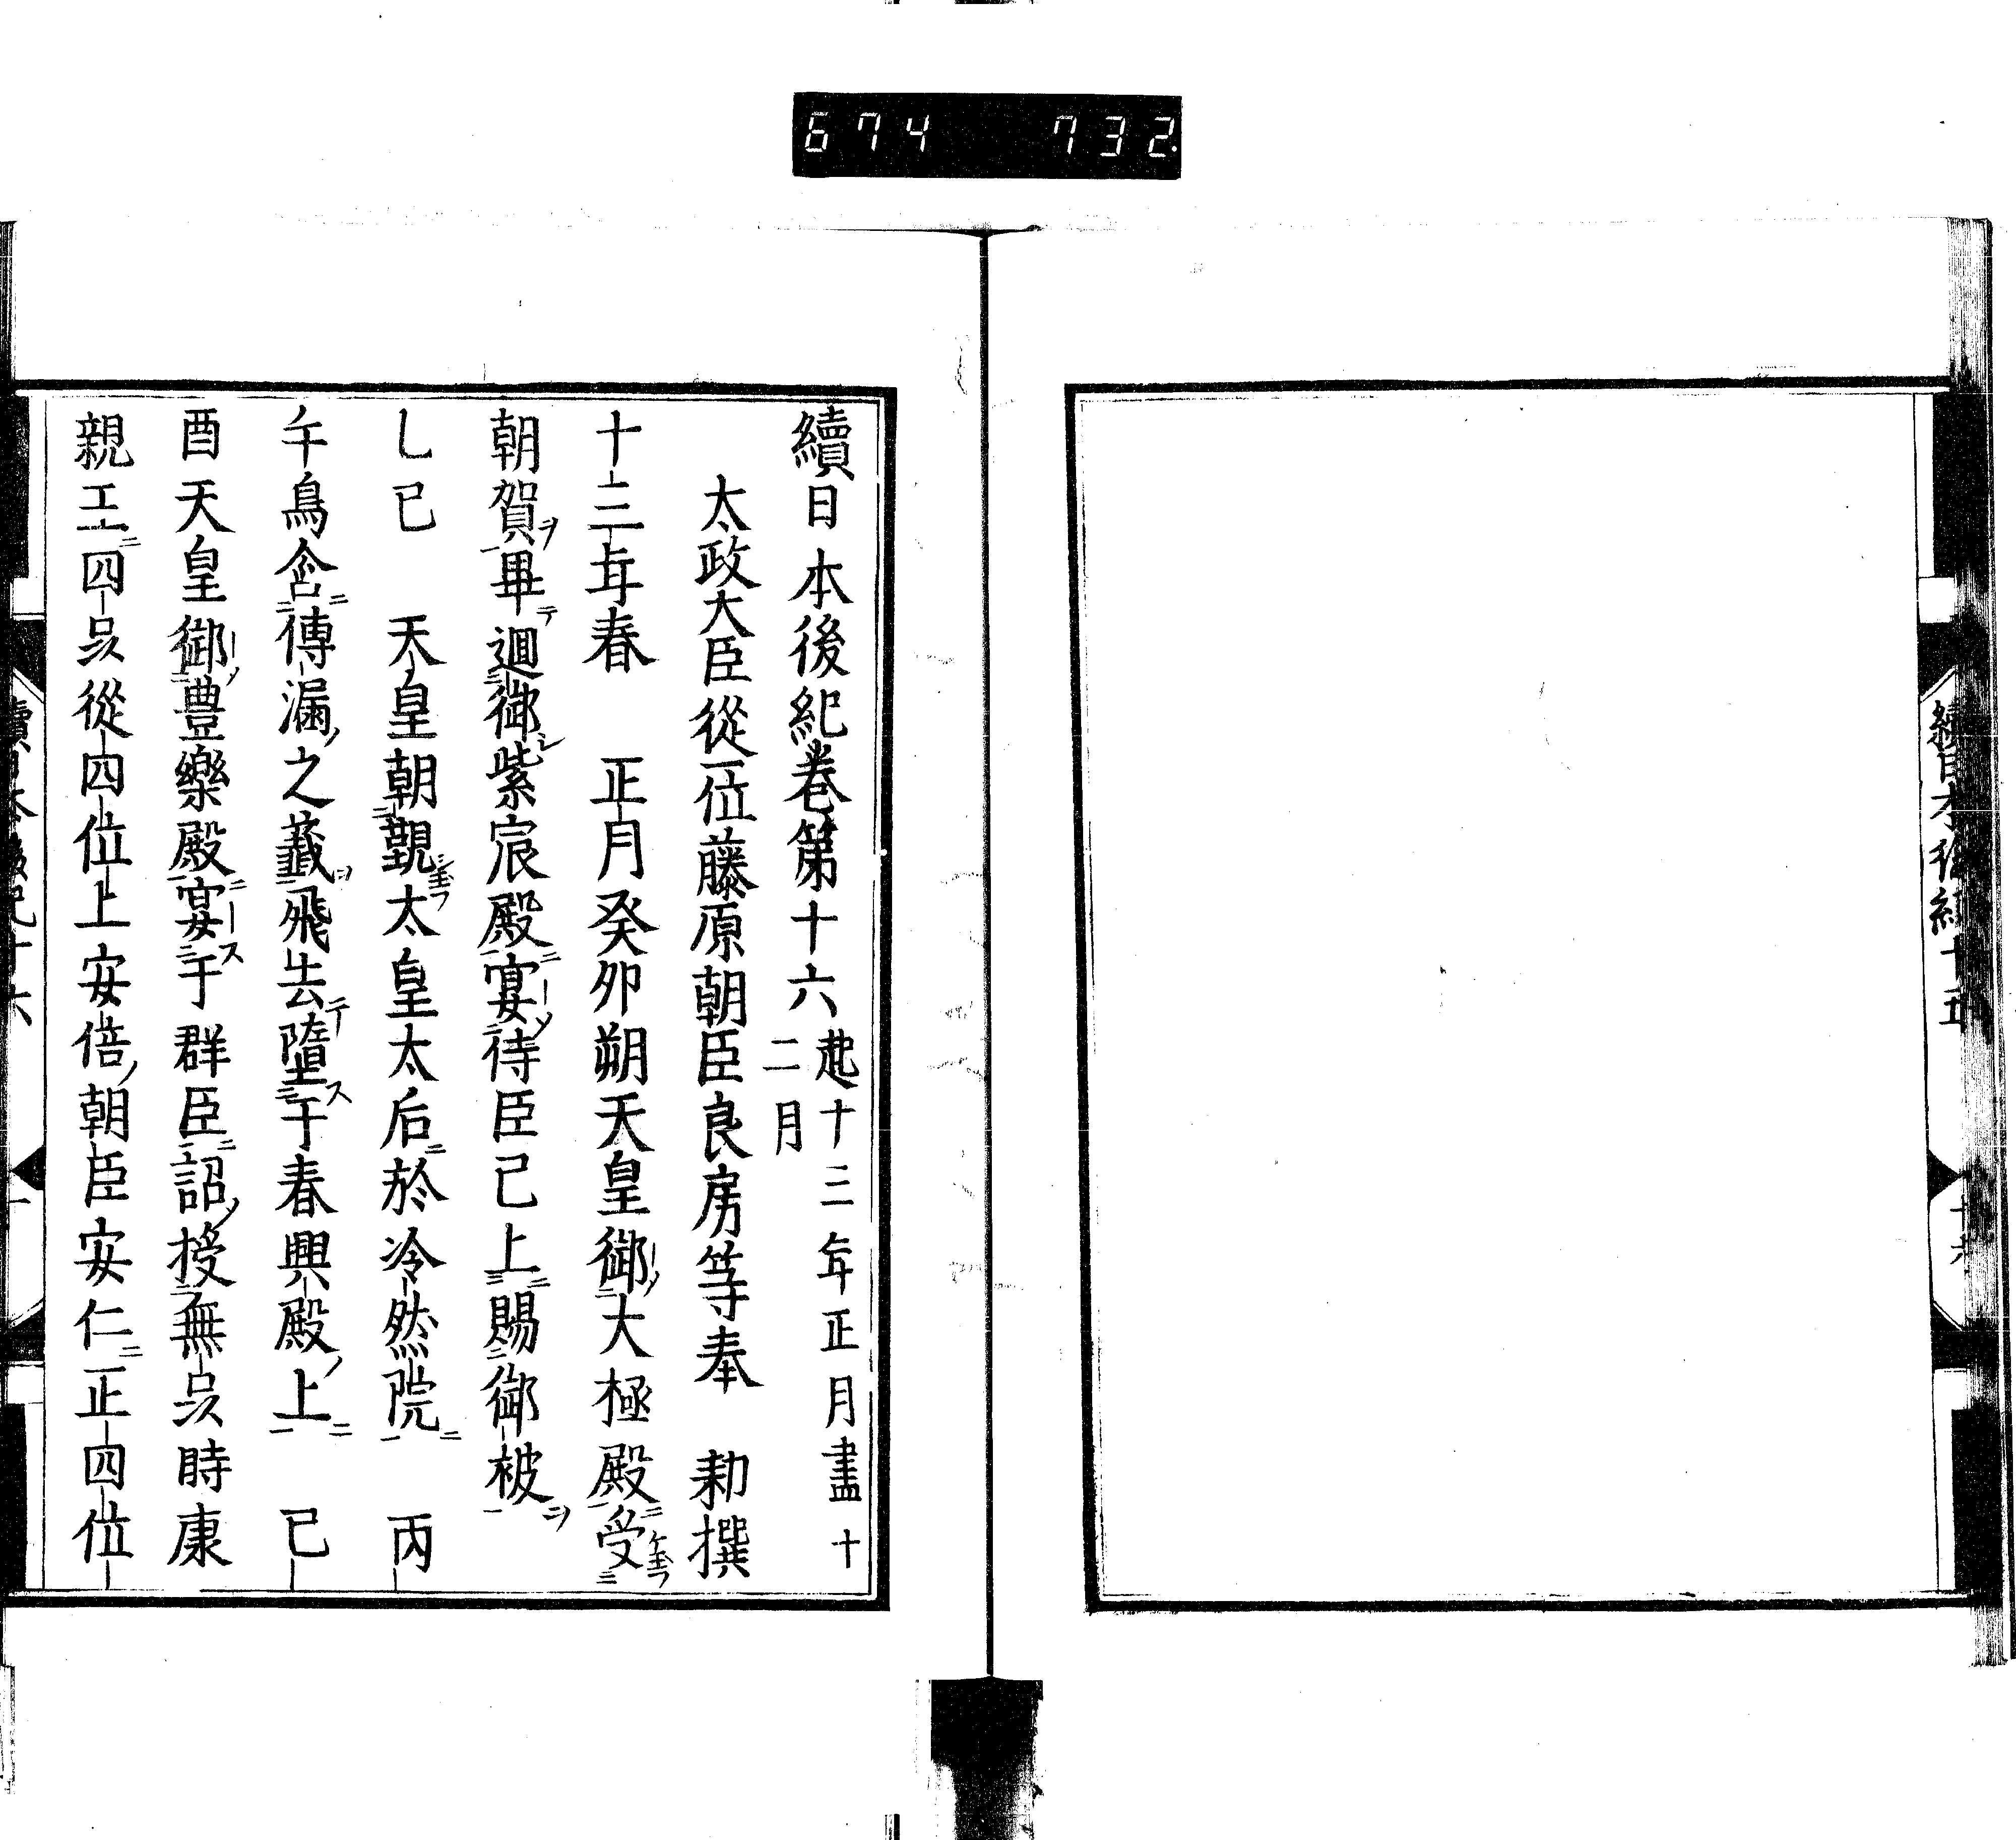 674 732
續日本後紀十五
續日本後紀卷第十六 起十三年正月盡十
二月
太政大臣從一位藤原朝臣良房等奉 勅撰
十三年春 正月癸卯朔天皇御大極殿受
朝賀畢迴御紫宸殿宴侍臣已上賜御被
乙巳 天皇朝覲太皇太后於冷然院 丙
午鳥含傳漏之籤飛去墮于春興殿上 己
酉天皇御豊樂殿宴于群臣詔授無品時康
親王四品從四位上安倍朝臣安仁正四位
續日本後紀十六